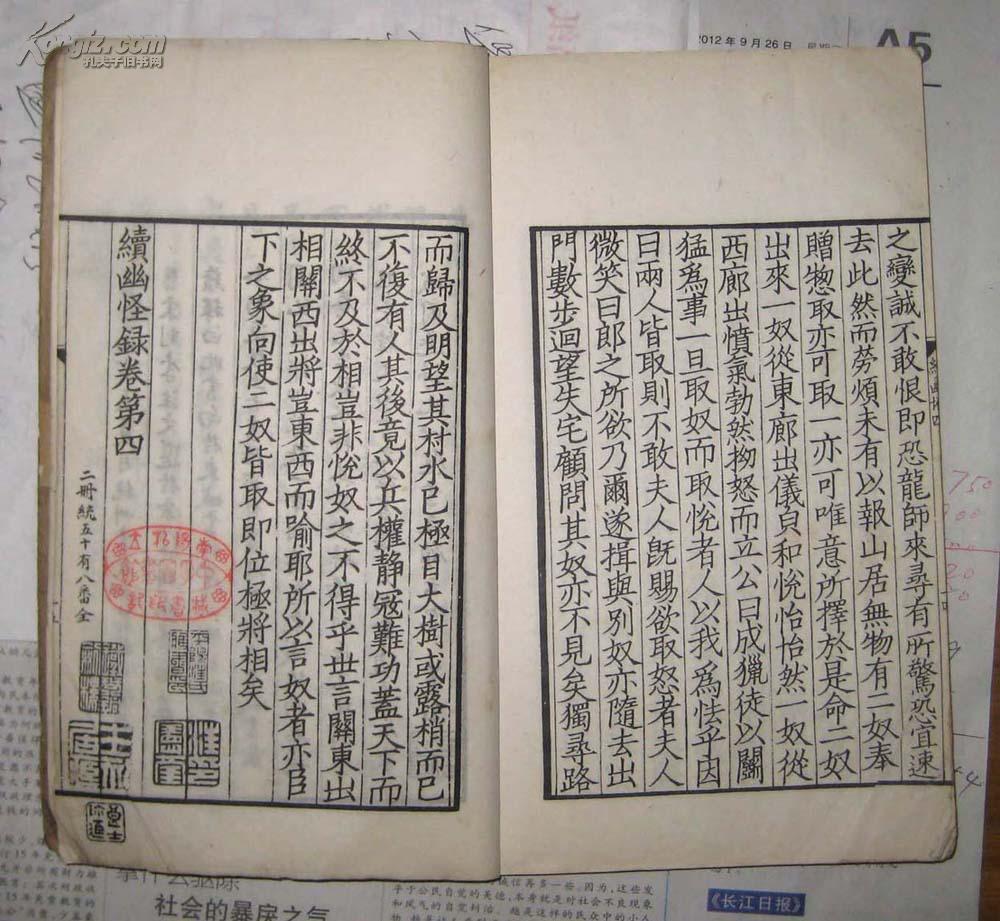 之變誠不敢恨即恐龍師來尋有所驚恐宜速
去此然而勞煩未有以報山居無物有二奴奉
贈惣取亦可取一亦可唯意所擇於是命二奴
出來一奴從東廊出儀皃和恱怡怡然一奴從
西廊出憤氣勃然拗怒而立公曰我獵徒以鬬
猛爲事一旦取奴而取恱者人以我爲怯乎因
曰兩人皆取則不敢夫人旣賜欲取怒者夫人
微笑曰郎之所欲乃爾遂揖與別奴亦隨去出
門數步迴望失宅顧問其奴亦不見矣獨尋路
而歸及明望其村水已極目大樹或露梢而已
不復有人其後竟以兵權靜寇難功蓋天下而
終不及於相豈非恱奴之不得乎世言關東出
相關西出將豈東西而喻耶所以言奴者亦臣
下之象向使二奴皆取即位極將相矣
續幽怪録卷第四
二冊統五十有八番全
Kongfz.com
孔夫子旧书网
2012年9月26日
A5
社会的暴戾之气
《长江日报》